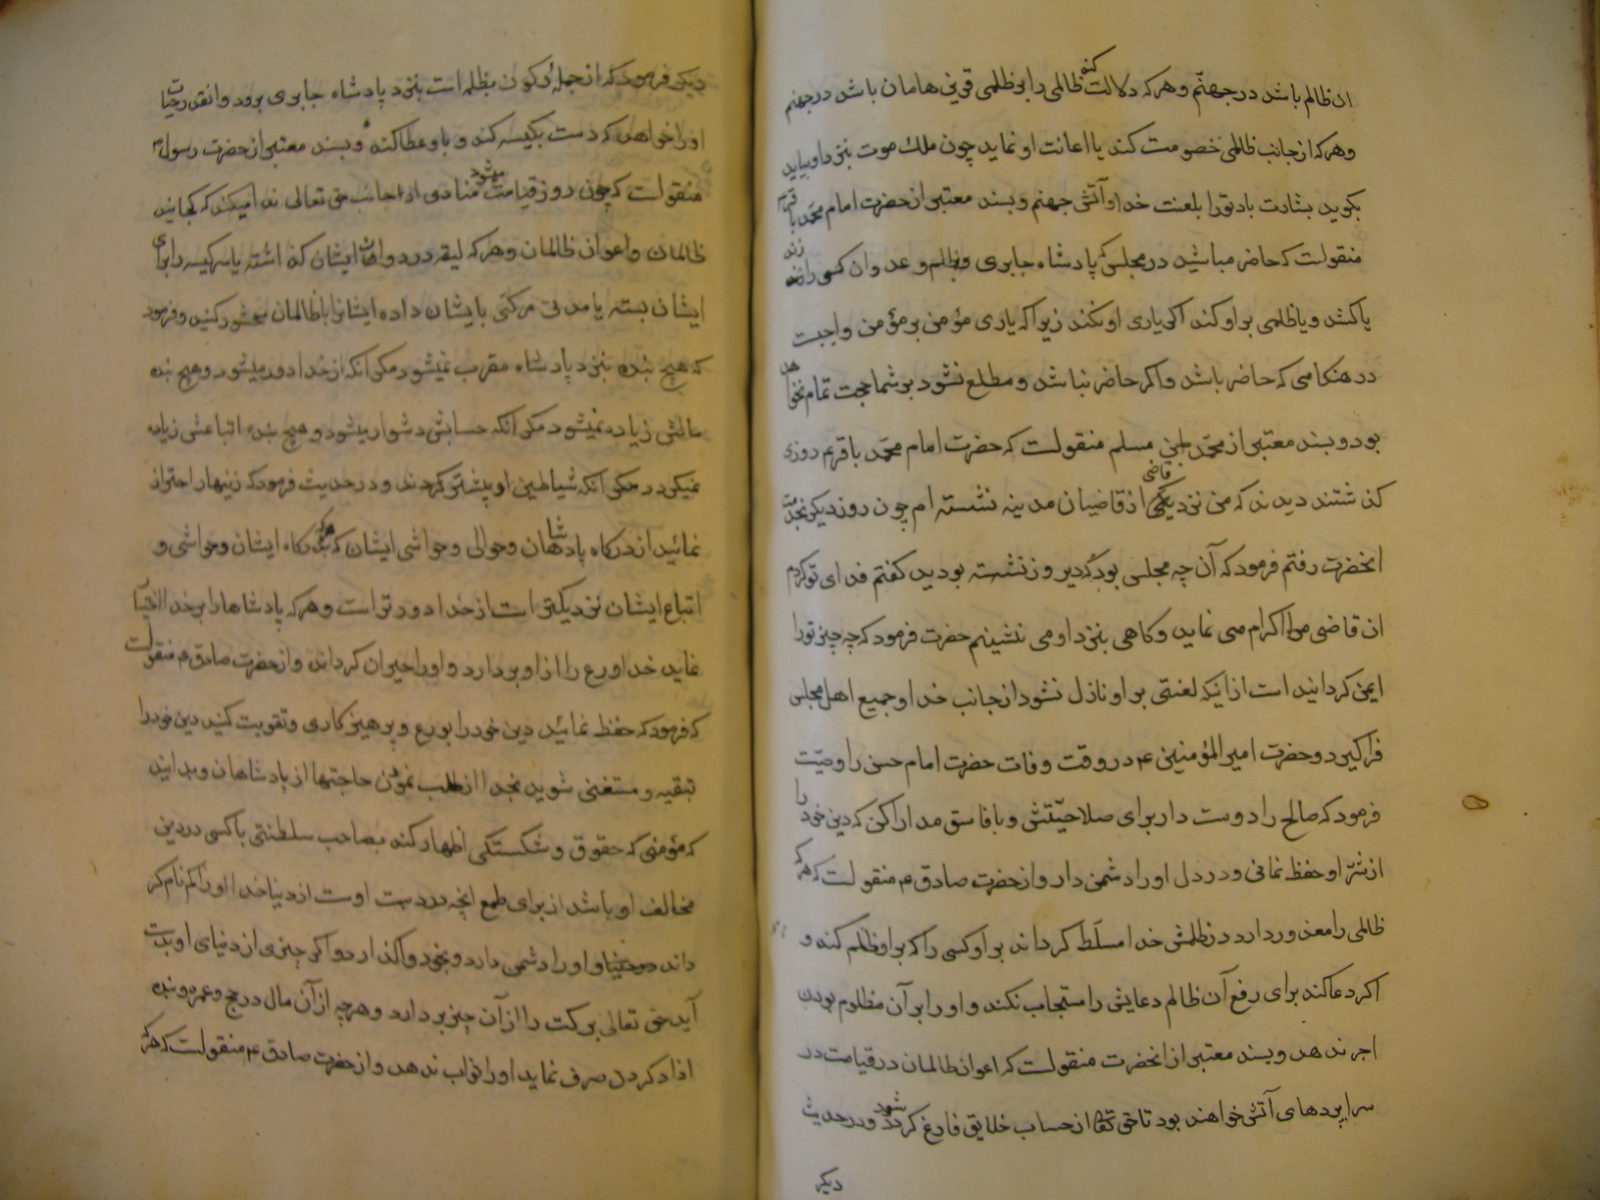 ان ظالم باشد در جهنّم و هرکه دلالت کند ظالمی را بر ظلمی قرین هامان باشد در جهنم
و هرکه از جانب ظالمی خصومت کند یا اعانت او نماید چون ملک موت بنزد او بیاید
بکوید بشارت باد تورا بلعنت خدا و آتش جهنم و بسند معتبر از حضرت امام محمّد باقر
منقولست که حاضر مباشید در مجلس که پادشاه جابری بظلم و عدوان کسی را زند
یا کشد و یا ظلمی بر او کند اکر یاری او نکند زیرا که یاری مؤمن بر مؤمن واجبست
در هنکامی که حاضر باشد و اکر حاضر نباشد و مطلع نشود بر شما حجت تمام نخواهد
بود و بسند معتبر از محمّد ابن مسلم منقولست که حضرت امام محمّد باقر ع روزی
کذشتند دیدند که من نزد قاضی از قاضیان مدینه نشسته ام چون روز دیکر بخدمت
انحضرت رفتم فرمود که آن چه مجلسی بود که دیروز نشسته بودید کفتم فدای تو کردم
ان قاضی مرا اکرام می نماید و کاهی بنزد او می نشینم حضرت فرمود که چه چیز تورا
ایمن کردانیده است از اینکه لعنتی بر او نازل نشود از جانب خدا و جمیع اهل مجلس
فرا کیرد و حضرت امیر المؤمنین ع در وقت وفات حضرت امام حسن را وصیّت
فرمود که صالح را دوست دار برای صلاحیّتش و با فاسق مدارا کن که دین خود را
از شرّ او حفظ نمائی و در دل او را دشمن دار و از حضرت صادق ع منقولست که هرکه
ظالمی را معذور دارد در ظلمش خدا مسلّط کرداند بر او کسی را که بر او ظلم کند و
اکر دعا کند برای رفع آن ظالم دعایش را مستجاب نکند و او را بر آن مظلوم بودن
اجر ندهد و بسند معتبر از انحضرت منقولست که اعوان ظالمان در قیامت در
سراپردهای آتش خواهند بود تا حق تعالی از حساب خلایق فارغ شود و در حدیث
دیکر
دیکر فرمود که از جمله و کون مظلم است بنزد پادشاه جابری برود و انقدر حیات
او را خواهد که دست بکیسه کند و باو عطا کند و بسند معتبر از حضرت رسول ص
منقولست که چون روز قیامت میشود منادی از جانب حق تعالی ندا میکند که کجایند
ظالمان و اعوان ظالمان و هرکه لیقه در دوات ایشان کذاشته یا سر کیسه را برای
ایشان بسته یا مدتی مرکّبی بایشان داده ایشانرا با ظالمان محشور کنید و فرمود
که هیچ بنده بنزد پادشاه مقرب نمیشود مکر انکه از خدا دور میشود و هیچ بنده
مالش زیاده نمیشود مکر انکه حسابش دشوار میشود و هیچ بنده اتباعش زیاده
نمیکردد مکر انکه شیاطین او بیشتر کردند و در حدیث فرمود که زنهار احتراز
نمائید از درکاه پادشاهان و حوالی و حواشی ایشان که هرکه بدرکاه ایشان و حواشی و
اتباع ایشان نزدیکتر است از خدا دورتر است و هرکه پادشاها را بر خدا اختیار
نماید خدا ورع را از او بردارد و او را حیران کرداند و از حضرت صادق ع منقولست
که فرمود که حفظ نمائید دین خود را بورع و پرهیزکاری و تقویت کنید دین خود را
بتقیه و مستغنی شوید بخدا از طلب نمودن حاجتها از پادشاهان و بدانید
که مؤمنی که حقوق و شکستکی اظهار کند بصاحب سلطنتی یا کسی در دین
مخالف او باشد از برای طمع انچه در دست اوست از دنیا خدا او را کم نام کر
داند و او را دشمن دارد و بخود واکذارد و اکر چیزی از دنیای او بدست
آید حق تعالی برکت را از آن چیز بردارد و هرچه از آن مال در حج و عمره و بنده
ازاد کردن صرف نماید او را ثواب ندهد و از حضرت صادق ع منقولست که هرکه